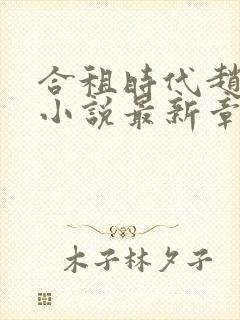 合租時代趙
小說最新章
木子林夕子